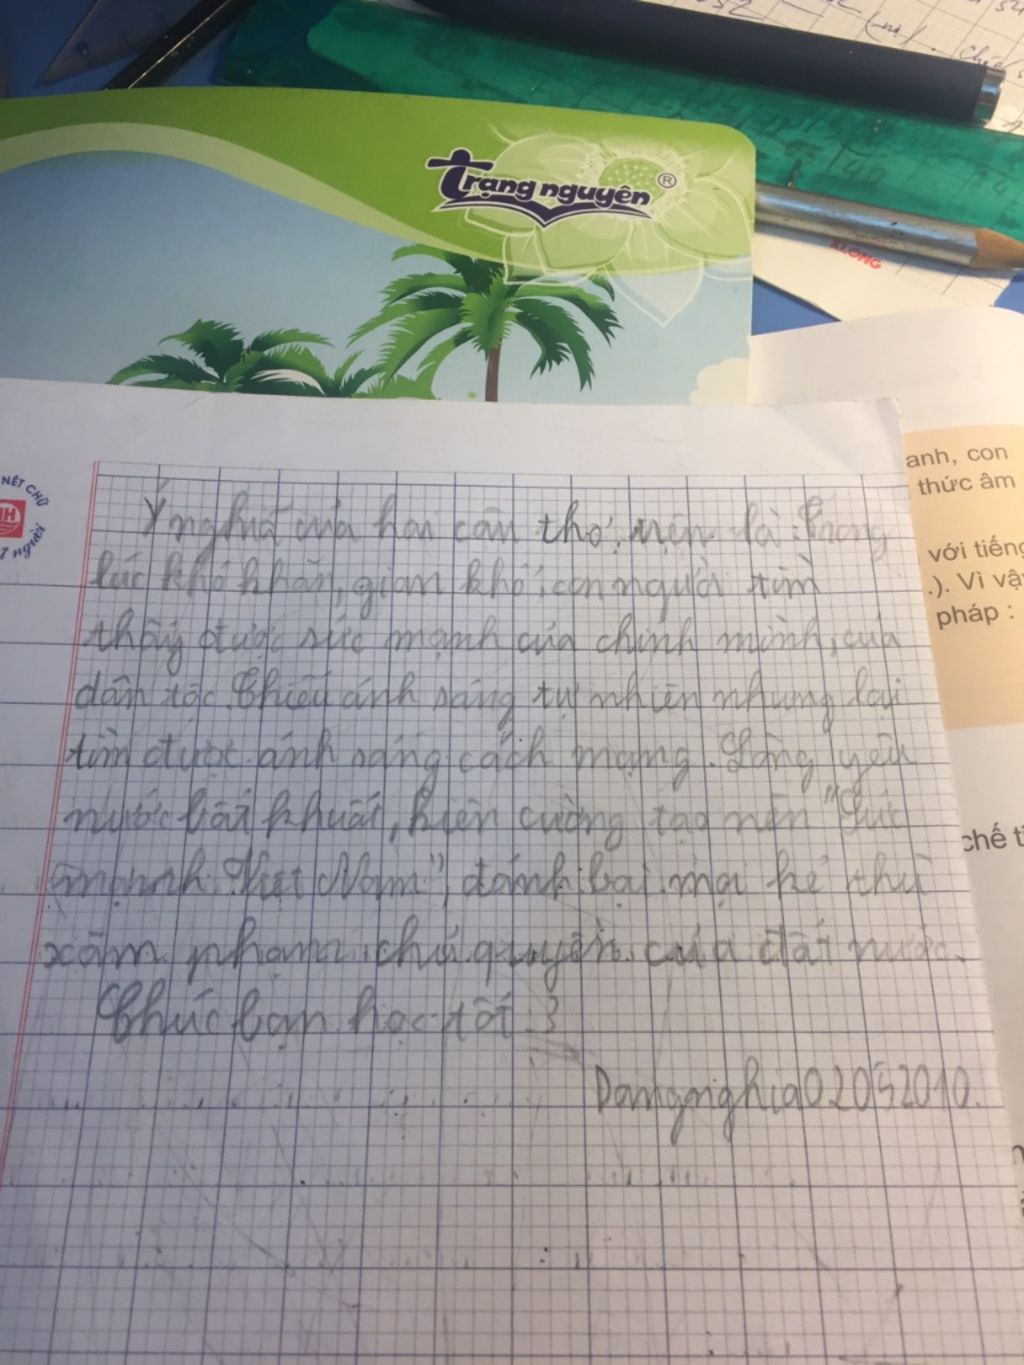 trạng nguyên ®
KLONG
NÉT CHỮ
người
anh, con
thức âm
với tiếng
.). Vì vậ
pháp :
chế t
Ý nghĩa của hai câu thơ trên là: Trong
lúc khó khăn, gian khổ, con người tìm
thấy được sức mạnh của chính mình, của
dân tộc. Thiếu ánh sáng tự nhiên nhưng lại
tìm được ánh sáng cách mạng. Lòng yêu
nước bất khuất, kiên cường tạo nên "Sức
mạnh Việt Nam", đánh bại mọi kẻ thù
xâm phạm chủ quyền của đất nước.
Chúc bạn học tốt :3
Dangnghia02052010.